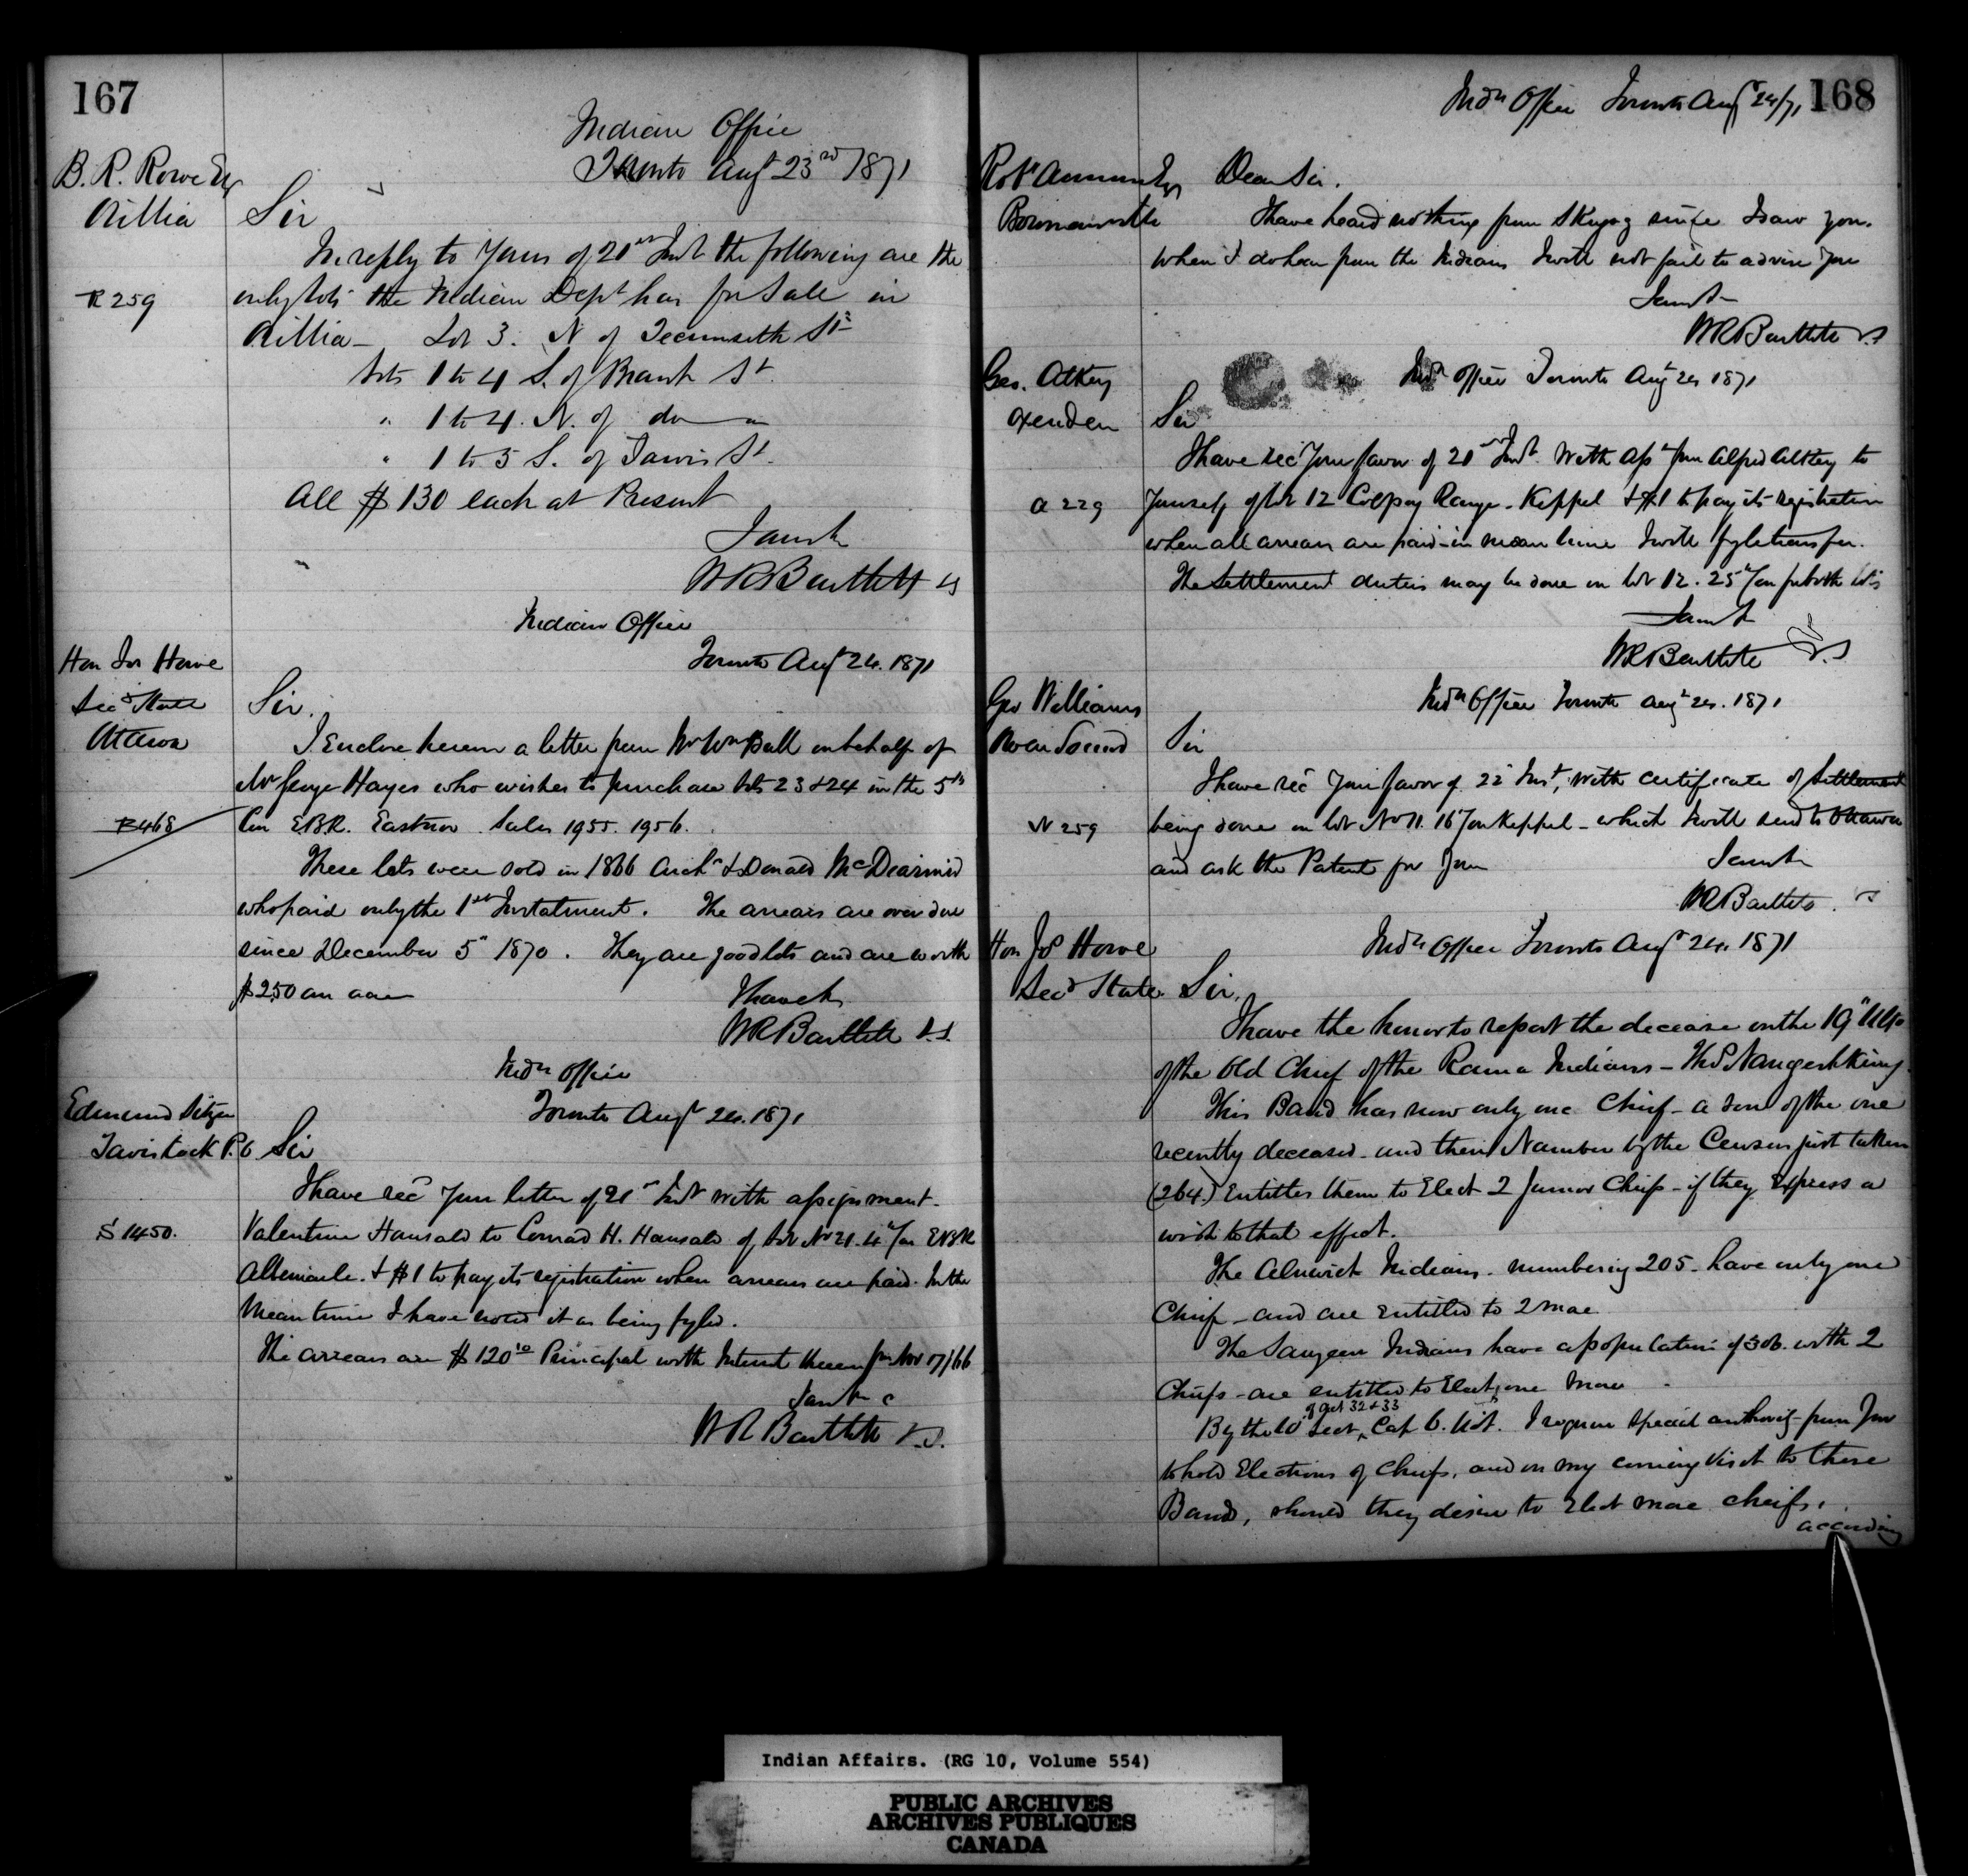 167
Indian Office
Toronto Augt 23rd 1871
B. R. Rowe Esq
Orillia
Sir
In reply to Yours of 21st Inst the following are the
R 259
only lots the Indian Dept has for Sale in
Orillia - Lot 3. N of Tecumseth St
Lots 1 to 4 S. of Brant St.
" 1 to 4. N. of do
" 1 to 5 S. of Jarvis St.
All $130 each at Present
WR Bartlett
Indian Office
Toronto Augt 24. 1871
Hon Jos Howe
Secy State
Ottawa
Sir.
I Enclose herein a letter from Mr Wm Bull on behalf of
Mr George Hayes who wishes to purchase lots 23 & 24 in the 5th
B468
Con E.B.R. Eastnor Sales 1955. 1956.
These lots were sold in 1866 Archd & Donald McDiarmid
who paid only the 1st Instalment. The arrears are over due
since December 5" 1870. They are good lots and are worth
$2.50 an acre
I have &c
WR Bartlett V.S.
Indn Office
Toronto Augt 24. 1871
Edmund
Tavistock P.O
Sir
I have recd your letter of 21st Inst with assignment
S 1450.
Valentine Hansald to Conrad H. Hansald of Lot No 21. 4 Con EBR
Albemarle. & $1 to pay its registration when arrears are paid. In the
Meantime I have noted it as being fyled.
The arrears are $120 10 Principal with Interest thereon from Nov 17/66
WR Bartlett V.S.
168
Indn Office Toronto Augt 24/71
Robt Armour Esq
Bowmanville
Dear Sir.
I have heard nothing from Skugog since I saw you.
when I do hear from the Indians I will not fail to advise you
WR Bartlett V.S
Indn Office Toronto Augt 24 1871
Geo. Atkey
Oxenden
Sir
I have recd Your favor of 21st Inst. With asst from Alfred Atkey to
A 229
Yourself of lot 12 Colpoy Range - Keppel & $1 to pay its registration
when all arrears are paid - in mean time I will fyle transfer.
The settlement duties may be done on lot 12. 25 Con for both lots
WR Bartlett V.S
Indn Office Toronto Augt 24. 1871
Geo Williams
Owen Sound
Sir
I have recd Your favor of 22 Inst, with certificate of Settlement
W 259
being done on lot No 11. 16 Con Keppel - which I will send to Ottawa
and ask the Patent for You
WR Bartlett V.S
Indn Office Toronto Augt 24. 1871
Hon Jos Howe
Secy State
Sir,
I have the honor to report the decease on the 19" Ulto
of the Old Chief of the Rama Indians - Thos Naingeshkung.
This Band has now only one Chief - a son of the one
recently deceased - and their Number by the Census just taken
(264.) Entitles them to Elect 2 Junior Chiefs - if they Express a
wish to that effect.
The Alnwick Indians - numbering 205 - have only one
Chief - and are entitled to 2 more
The Saugeen Indians have a population of 306. with 2
Chiefs - are entitled to Elect one More
of Act 32 & 33
By the 10 Sect, Cap 6. Vict. I require special authority from You
to hold Elections of Chiefs, and on my coming Visit to these
Bands, should they desire to Elect more Chiefs,
according
Indian Affairs. (RG 10, Volume 554)
PUBLIC ARCHIVES
ARCHIVES PUBLIQUES
CANADA